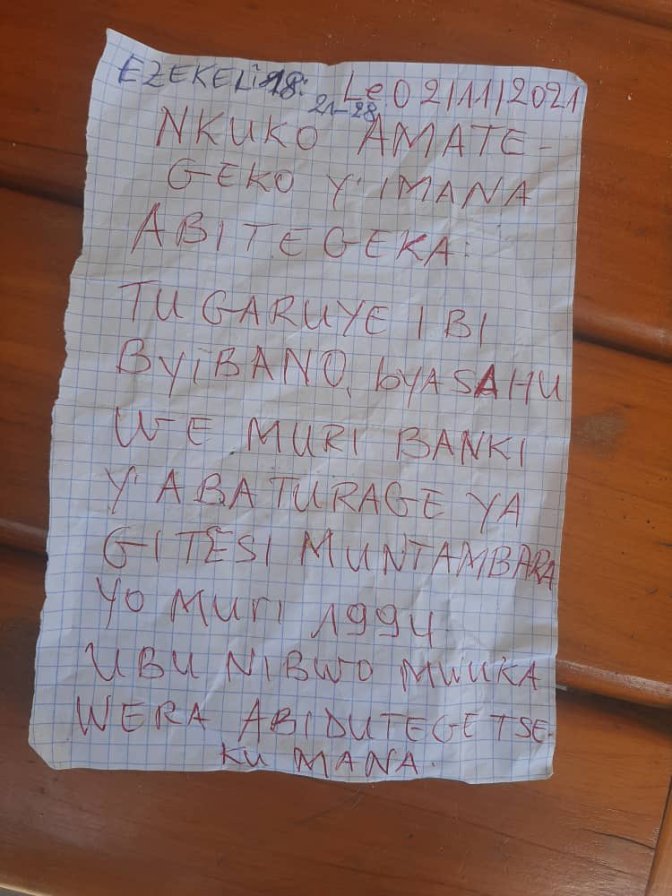 EZEKELi 18: Le 02/11/2021
21-28
NKUKO AMATE-
GEKO Y'IMANA
ABITEGEKA:
TUGARUYE IBI
BYiBANO, byASAHU
WE MURI BANKI
Y'ABATURAGE YA
GITESI MUNTAMBARA
YO MUri 1994
UBU NIBWO MWUKA
WERA ABIDUTEGETSE.
KU MANA.